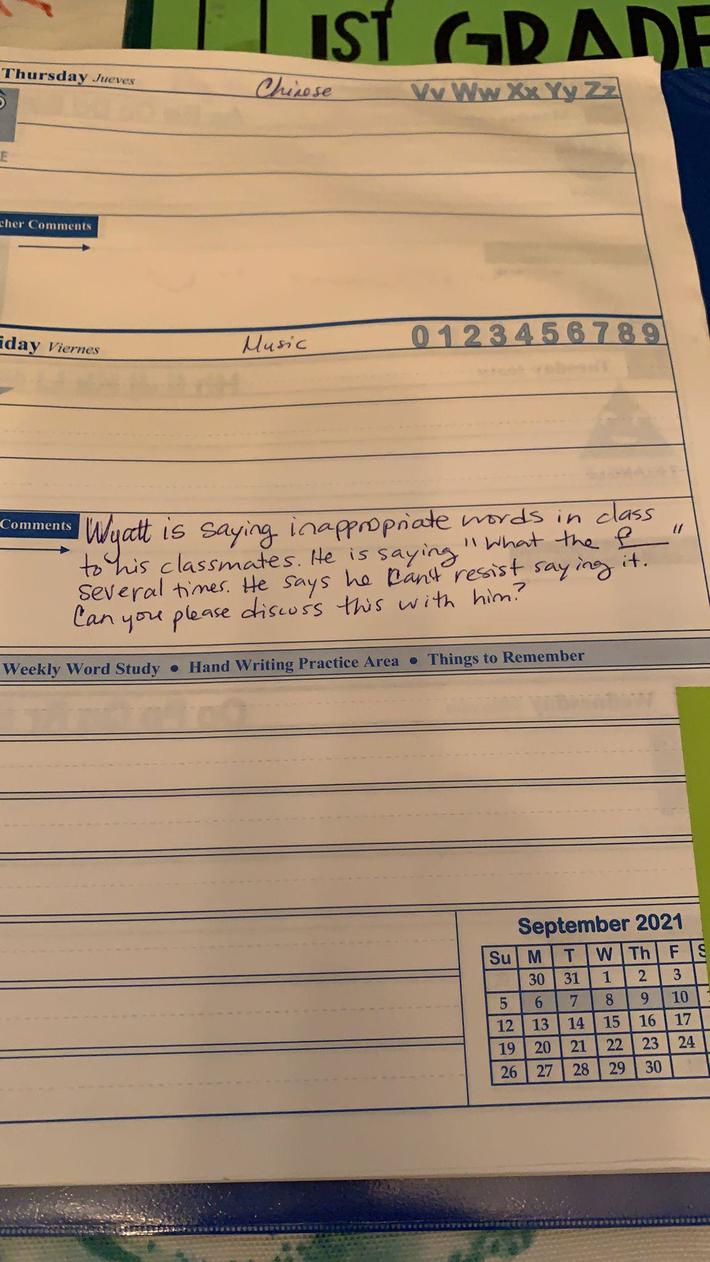 1ST GRADE
Thursday Jueves Chinese Vv Ww Xx Yy Zz
E
cher Comments
iday Viernes Music 0 1 2 3 4 5 6 7 8 9
Comments Wyatt is saying inappropriate words in class
to his classmates. He is saying "What the f___"
several times. He says he can't resist saying it.
Can you please discuss this with him?
Weekly Word Study • Hand Writing Practice Area • Things to Remember
September 2021
Su M T W Th F S
30 31 1 2 3
5 6 7 8 9 10
12 13 14 15 16 17
19 20 21 22 23 24
26 27 28 29 30